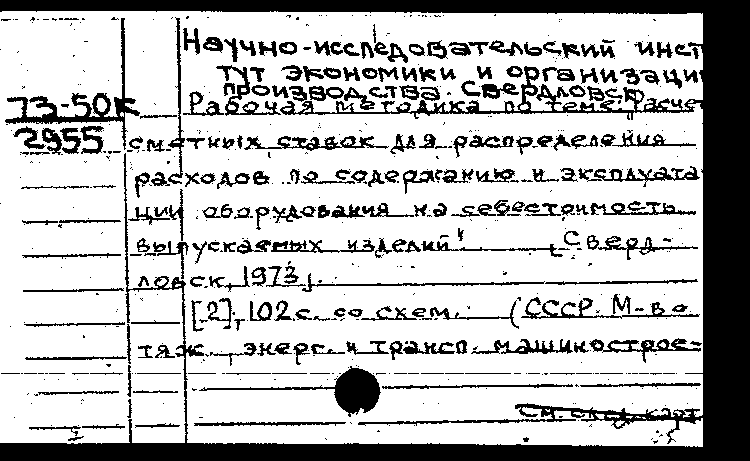 Научно-исследовательский инсти
тут экономики и организации
производства. Свердловск
73-50к
2955
Рабочая методика по теме: "Расчет
сметных ставок для распределения
расходов по содержанию и эксплуата-
ции оборудования на себестоимость
выпускаемых изделий" [Сверд-
ловск, 1973].
[2], 102 с. со схем. (СССР. М-во
тяж., энерг. и трансп. машиностро-
См. след. карт